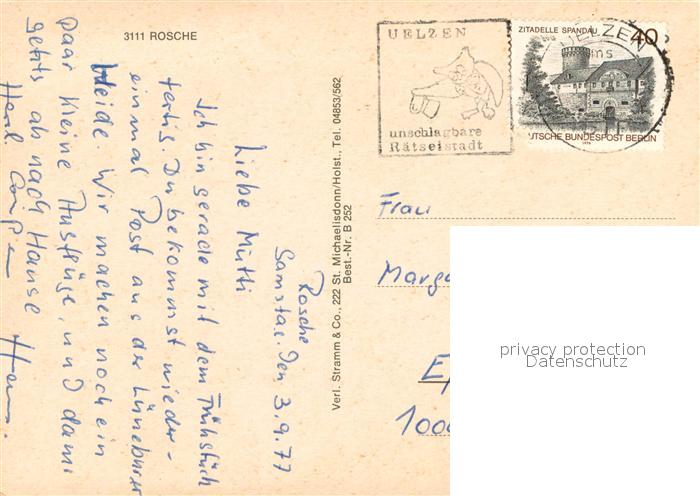 3111 ROSCHE
Rosche
Samstag, den 3.9.77
Liebe Mutti
Ich bin gerade mit dem Frühstück
fertig. Du bekommst wieder-
einmal Post aus der Lüneburer
Heide. Wir machen noch ein
paar kleine Ausflüge, und dann
gehts ab nach Hause
Herzl. Grüße Hans.
Verl. Stramm & Co., 222 St. Michaelisdonn/Holst., Tel. 04853/562
Best.-Nr. B 252
UELZEN
unschlagbare
Rätselstadt
ZITADELLE SPANDAU
40
UELZEN
DEUTSCHE BUNDESPOST BERLIN
Frau
Marga
1000
privacy protection
Datenschutz